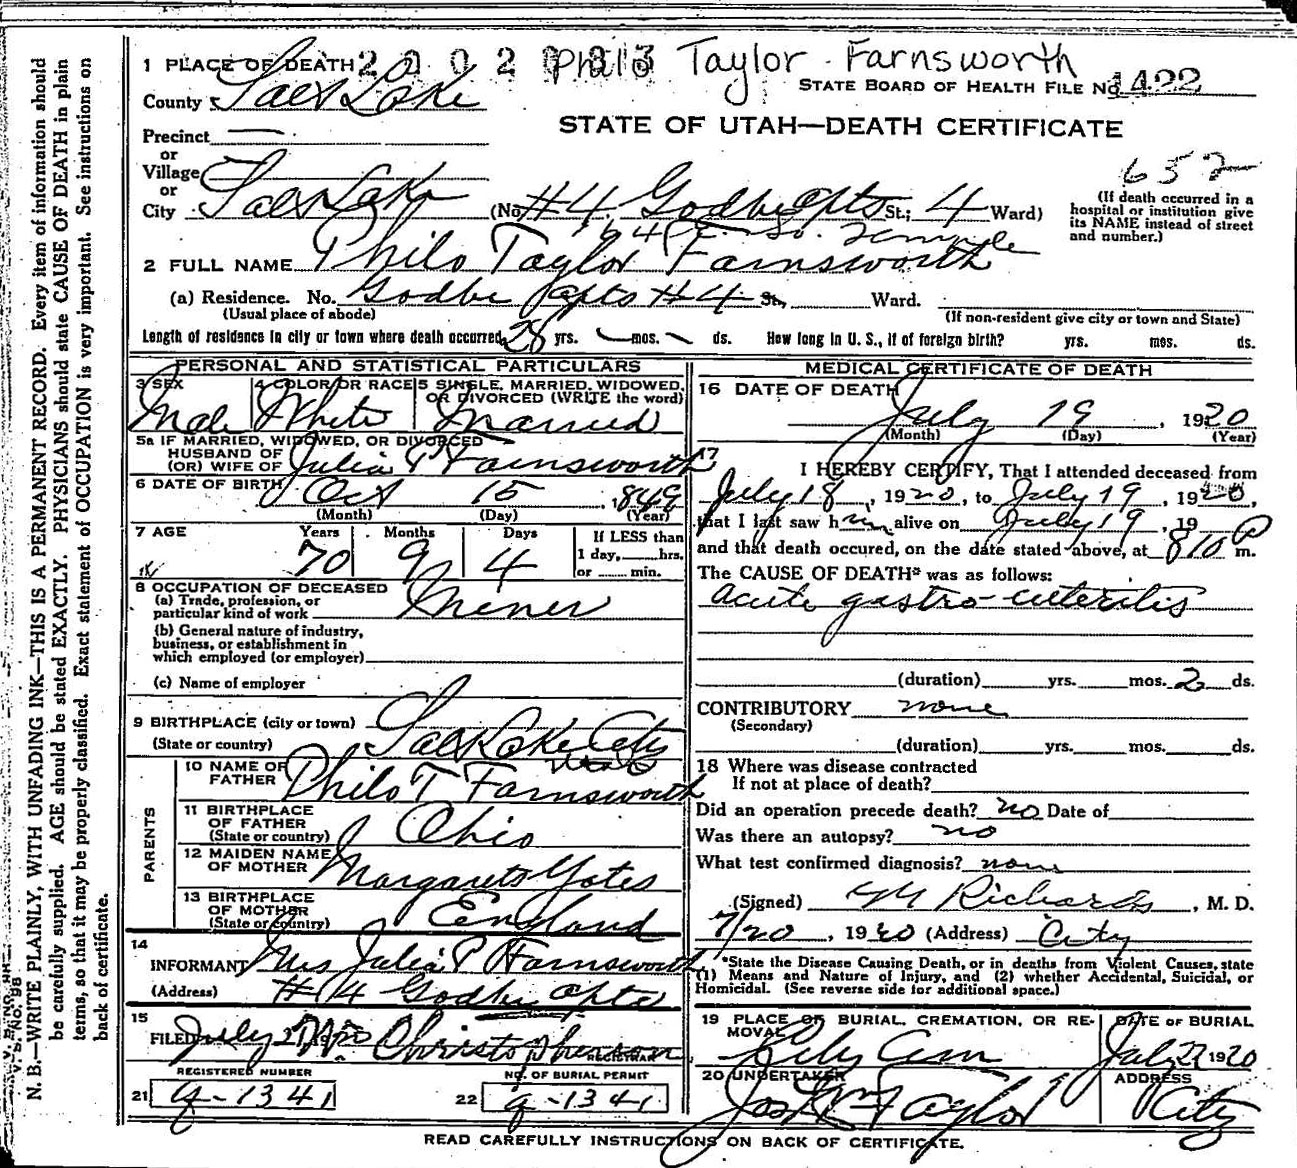 2002033 Philo Taylor Farnsworth
1 PLACE OF DEATH
STATE BOARD OF HEALTH FILE No 1422
County Salt Lake
STATE OF UTAH—DEATH CERTIFICATE
Precinct —
or
Village
or
652
City Salt Lake (No. #4 Godbe Apts St.; 4 Ward)
(If death occurred in a hospital or institution give its NAME instead of street and number.)
164 E. So. Temple
2 FULL NAME Philo Taylor Farnsworth
(a) Residence. No. Godbe Apts #4 St., Ward.
(Usual place of abode) (If non-resident give city or town and State)
Length of residence in city or town where death occurred 28 yrs. mos. ds. How long in U. S., if of foreign birth? yrs. mos. ds.
PERSONAL AND STATISTICAL PARTICULARS
3 SEX Male
4 COLOR OR RACE White
5 SINGLE, MARRIED, WIDOWED, OR DIVORCED (WRITE the word) Married
5a IF MARRIED, WIDOWED, OR DIVORCED
HUSBAND OF
(OR) WIFE OF Julia P Farnsworth
6 DATE OF BIRTH Oct 15, 1849
(Month) (Day) (Year)
7 AGE Years 70 Months 9 Days 4
If LESS than
1 day, hrs.
or min.
8 OCCUPATION OF DECEASED
(a) Trade, profession, or
particular kind of work Miner
(b) General nature of industry,
business, or establishment in
which employed (or employer)
(c) Name of employer
9 BIRTHPLACE (city or town) Salt Lake City
(State or country) Utah
PARENTS
10 NAME OF
FATHER Philo T Farnsworth
11 BIRTHPLACE
OF FATHER
(State or country) Ohio
12 MAIDEN NAME
OF MOTHER Margaret Yates
13 BIRTHPLACE
OF MOTHER
(State or country) England
14
INFORMANT Mrs Julia P Farnsworth
(Address) #4 Godbe Apts
15
FILED July 21 1920 Christopherson
REGISTRAR
REGISTERED NUMBER
21 g-1341
NO. OF BURIAL PERMIT
22 g-1341
MEDICAL CERTIFICATE OF DEATH
16 DATE OF DEATH
July 19, 1920
(Month) (Day) (Year)
17
I HEREBY CERTIFY, That I attended deceased from
July 18, 1920, to July 19, 1920,
that I last saw him alive on July 19, 19
and that death occured, on the date stated above, at 810 P m.
The CAUSE OF DEATH* was as follows:
acute gastro-enteritis
(duration) yrs. mos. 2 ds.
CONTRIBUTORY none
(Secondary)
(duration) yrs. mos. ds.
18 Where was disease contracted
If not at place of death?
Did an operation precede death? no Date of
Was there an autopsy? no
What test confirmed diagnosis? none
(Signed) Richards, M. D.
7/20, 1920 (Address) City
*State the Disease Causing Death, or in deaths from Violent Causes, state
(1) Means and Nature of Injury, and (2) whether Accidental, Suicidal, or
Homicidal. (See reverse side for additional space.)
19 PLACE OF BURIAL, CREMATION, OR RE-
MOVAL City Cem
DATE OF BURIAL
July 22 1920
20 UNDERTAKER
Jos Wm Taylor
ADDRESS
City
READ CAREFULLY INSTRUCTIONS ON BACK OF CERTIFICATE.
V. S. No. 98
N. B.—WRITE PLAINLY, WITH UNFADING INK—THIS IS A PERMANENT RECORD. Every item of information should
be carefully supplied. AGE should be stated EXACTLY. PHYSICIANS should state CAUSE OF DEATH in plain
terms, so that it may be properly classified. Exact statement of OCCUPATION is very important. See instructions on
back of certificate.